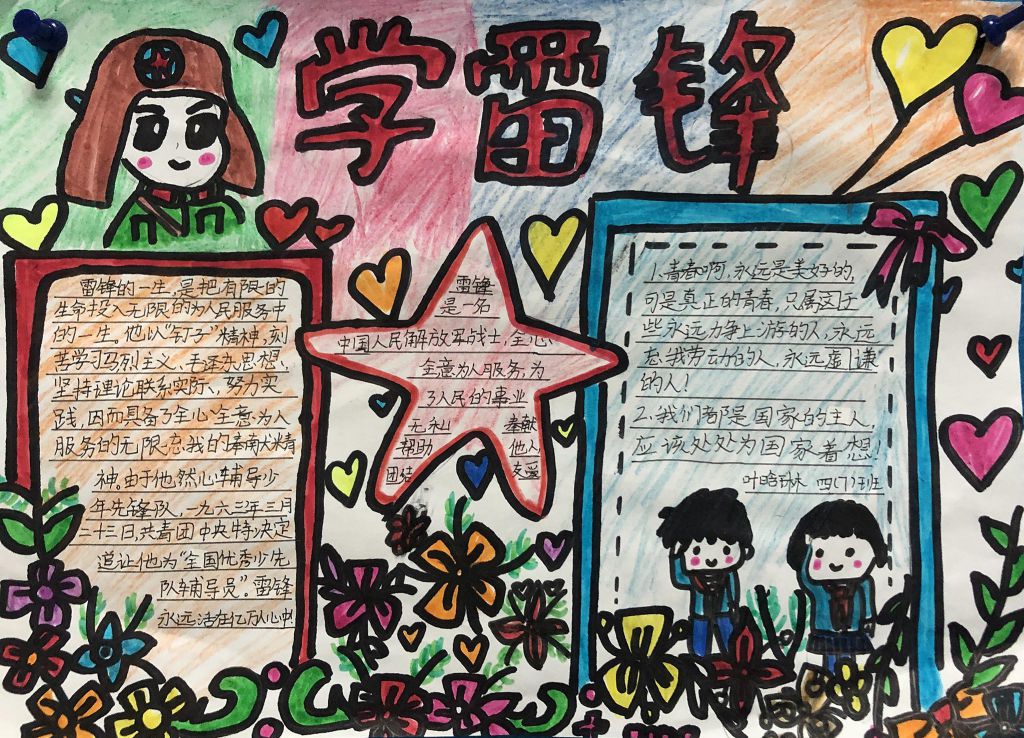 学雷锋
雷锋的一生，是把有限的
生命投入无限的为人民服务中
的一生。他以“钉子”精神，刻
苦学习马列主义、毛泽东思想、
坚持理论联系实际、努力实
践，因而具备了全心全意为人
服务的无限忘我的
神。由于他热心辅导少
年先锋队，一九六三年三月
二十三日，共青团中央特决定
道让他为“全国优秀少先
队辅导员”。雷锋
永远活在亿万人心中！
雷锋
是一名
中国人民解放军战士，全心、
全意为人服务，为
了人民的事业
无私 奉献
帮助 他人
团结 友爱
1.青春啊，永远是美好的，
可是真正的青春，只属这于
些永远力争上游的人，永远
忘我劳动的人，永远虚谦
的人！
2.我们都是国家的主人
应该处处为国家着想！
叶晗琳 四(7)班